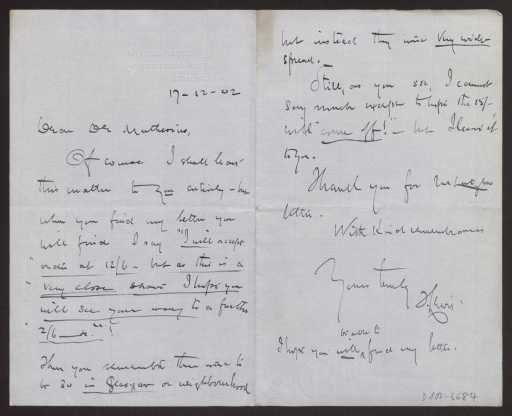 17-12-02
Dear Mr Mathewson,
Of course I shall leave
this matter to you entirely - but
when you find my letter you
will find I say "I will accept
orders at 12/6 - but as this is a
very close shave I hope you
will see your way to a further
2/6 "!
Then you remember there were to
be 30 in Glasgow or neighbourhood
but instead they were very wide
spread.
Still, as you see, I cannot
say much except to hope the 15/-
will "come off!" - but I leave it
to you.
Thank you for
letter.
With kind remembrances
Yours truly
I hope you will find my letter.